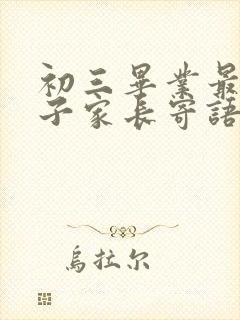 初三畢業最
子家長寄語
烏拉尔